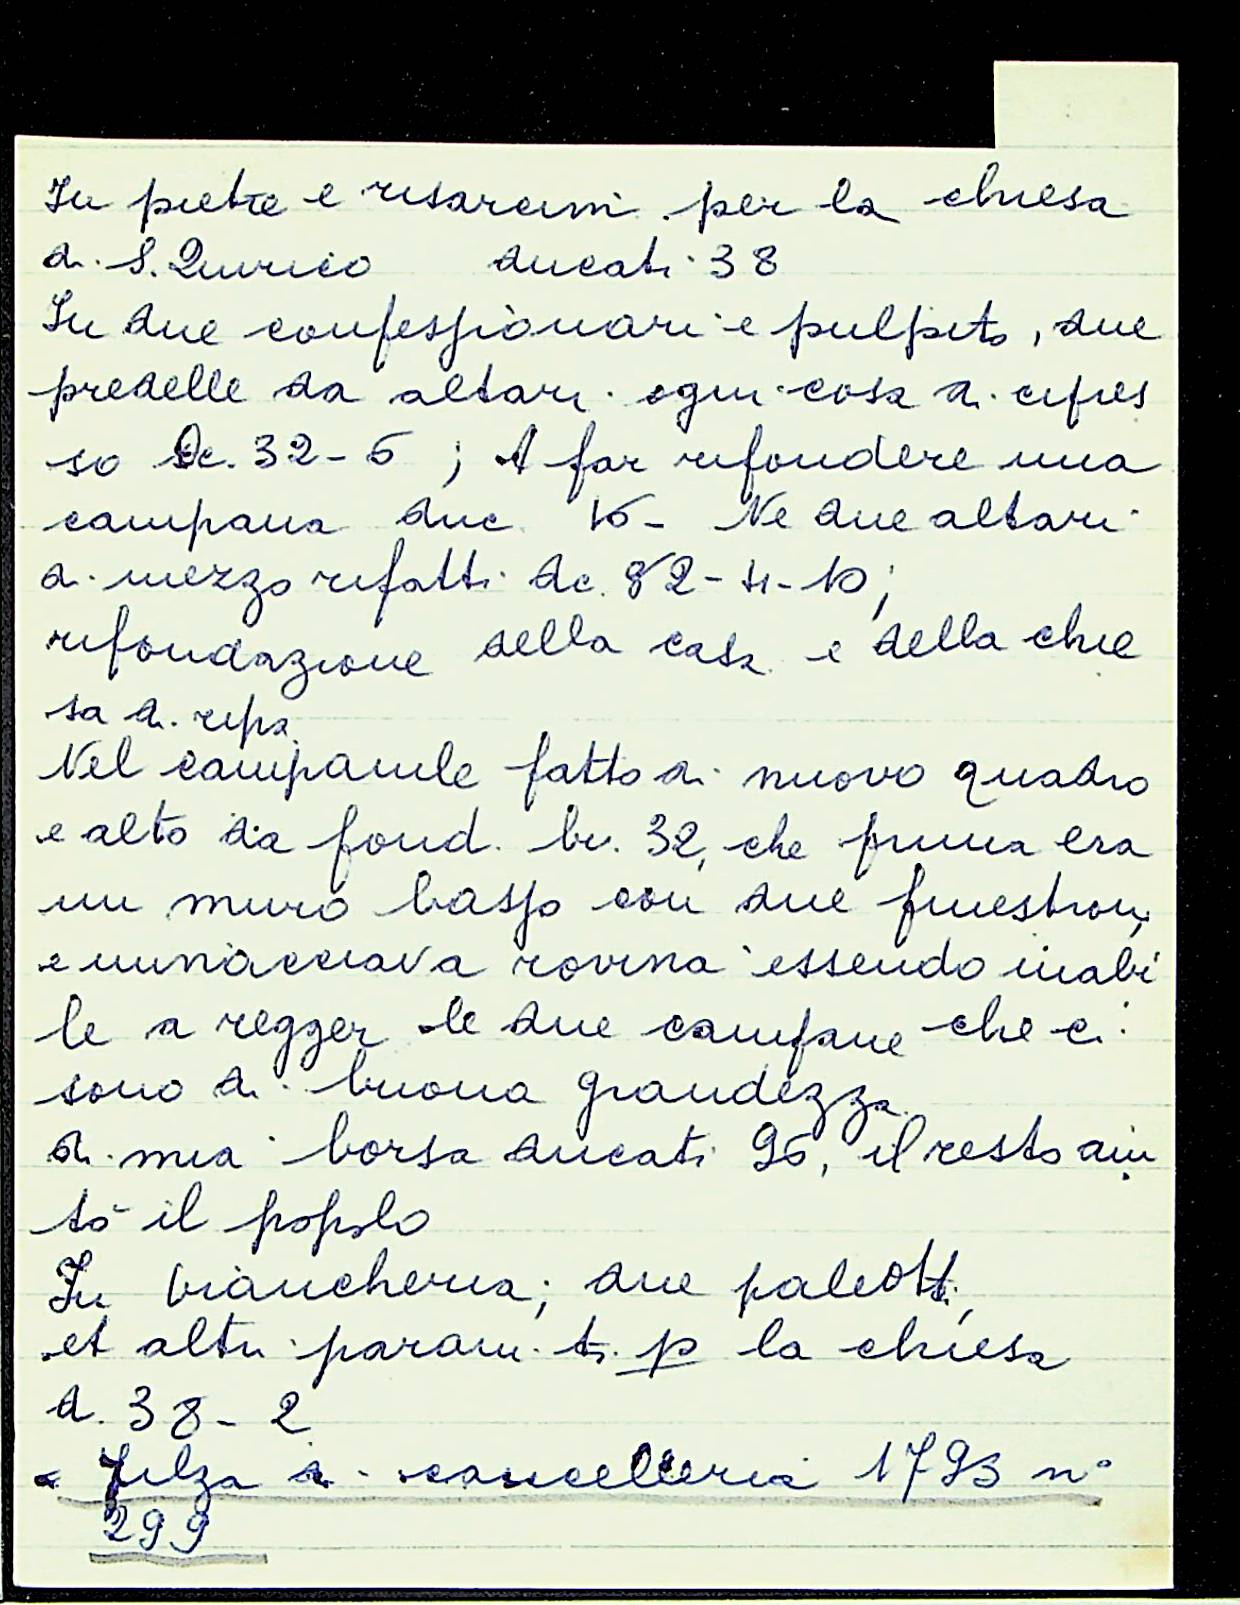 In pietre e risarcimi per la chiesa
di S. Quirico ducati 38
In due confessionari e pulpito, due
predelle da altari ogni cosa di cipres
so Dc. 32-6; A far rifondere una
campana duc. 16- Ne due altari
di mezzo rifatti dc. 82-4-10;
rifondazione della casa e della chie
sa di ripa.
Nel campanile fatto di nuovo quadro
e alto da fond. br. 32, che prima era
un muro basso con due finestroni,
e minacciava rovina essendo inabi
le a regger le due campane che ci
sono di buona grandezza.
di mia borsa ducati 96, il resto aiu
tò il popolo
In biancheria; due paleotti,
et altri param. ti. p la chiesa
d. 38-2
Filza di cancelleria 1793 n°
299